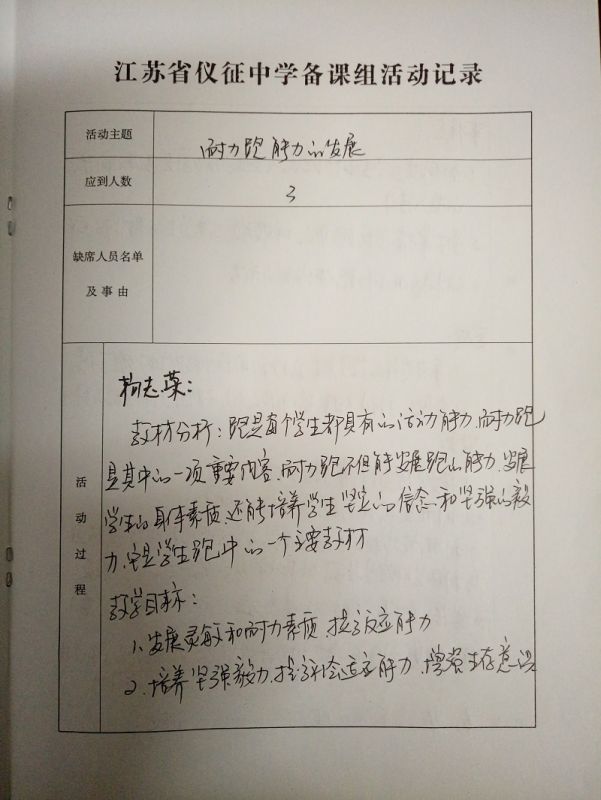 江苏省仪征中学备课组活动记录
活动主题
耐力跑能力的发展
应到人数
3
缺席人员名单
及事由
活动过程
杨志荣：
教材分析：跑是每个学生都具有的活动能力，耐力跑
是其中的一项重要内容，耐力跑不但能发展跑的能力，发展
学生的身体素质，还能培养学生坚定的信念和坚强的毅
力，它是学生跑中的一个主要教材
教学目标：
1、发展灵敏和耐力素质，提高反应能力
2、培养坚强毅力，提高适应能力，增强生存意识